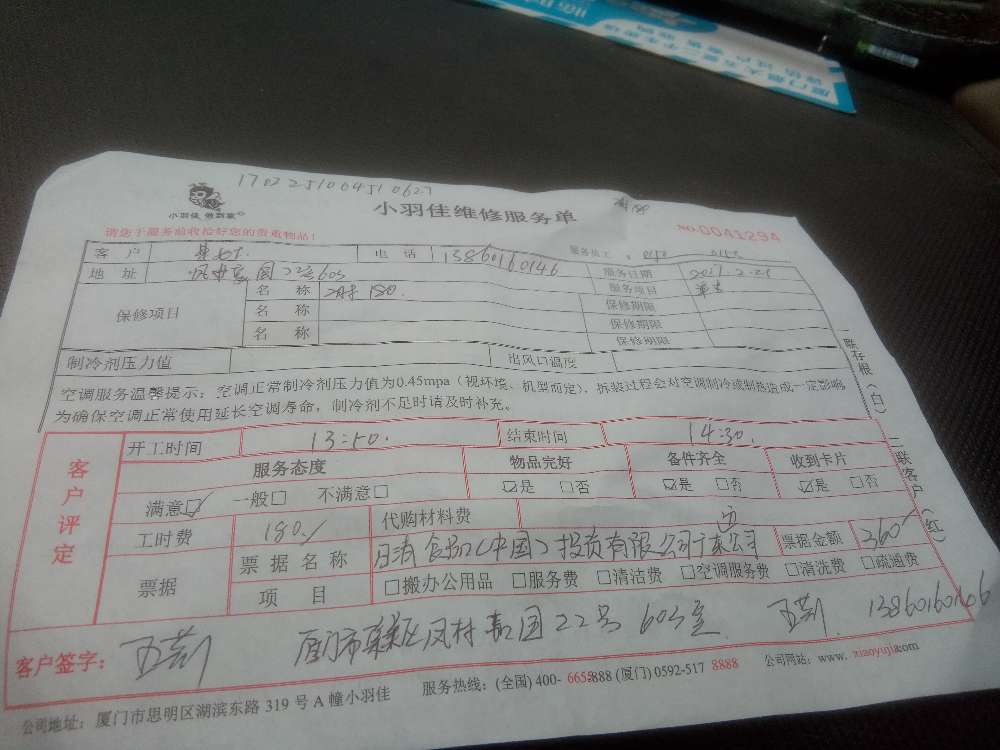 小羽佳维修服务单
小羽佳
请您于服务前收检好您的贵重物品！
NO.0041294
客 户 电 话 13860160146 服务员工
地 址 22号603 服务日期
保修项目 名 称 180. 服务项目
名 称 保修期限
名 称 保修期限
保修期限
制冷剂压力值 出风口温度
空调服务温馨提示：空调正常制冷剂压力值为0.45mpa（视环境、机型而定），拆装过程会对空调制冷或制热造成一定影响
为确保空调正常使用延长空调寿命，制冷剂不足时请及时补充。
一联存根（白）
二联客户（红）
客户评定
开工时间 13:50. 结束时间 14:30.
服务态度 物品完好 备件齐全 收到卡片
满意☑ 一般□ 不满意□ ☑是 □否 ☑是 □否 ☑是 □否
工时费 180/ 代购材料费
票据 票据名称 日清食品(中国)投资有限公司 票据金额 360
项 目 □搬办公用品 □服务费 □清洁费 □空调服务费 □清洗费 □疏通费
客户签字： 22号 603室 13860160146
公司地址：厦门市思明区湖滨东路 319 号 A 幢小羽佳 服务热线：(全国) 400- 6658888 (厦门) 0592-517 8888 公司网站：www. xiaoyujia.com